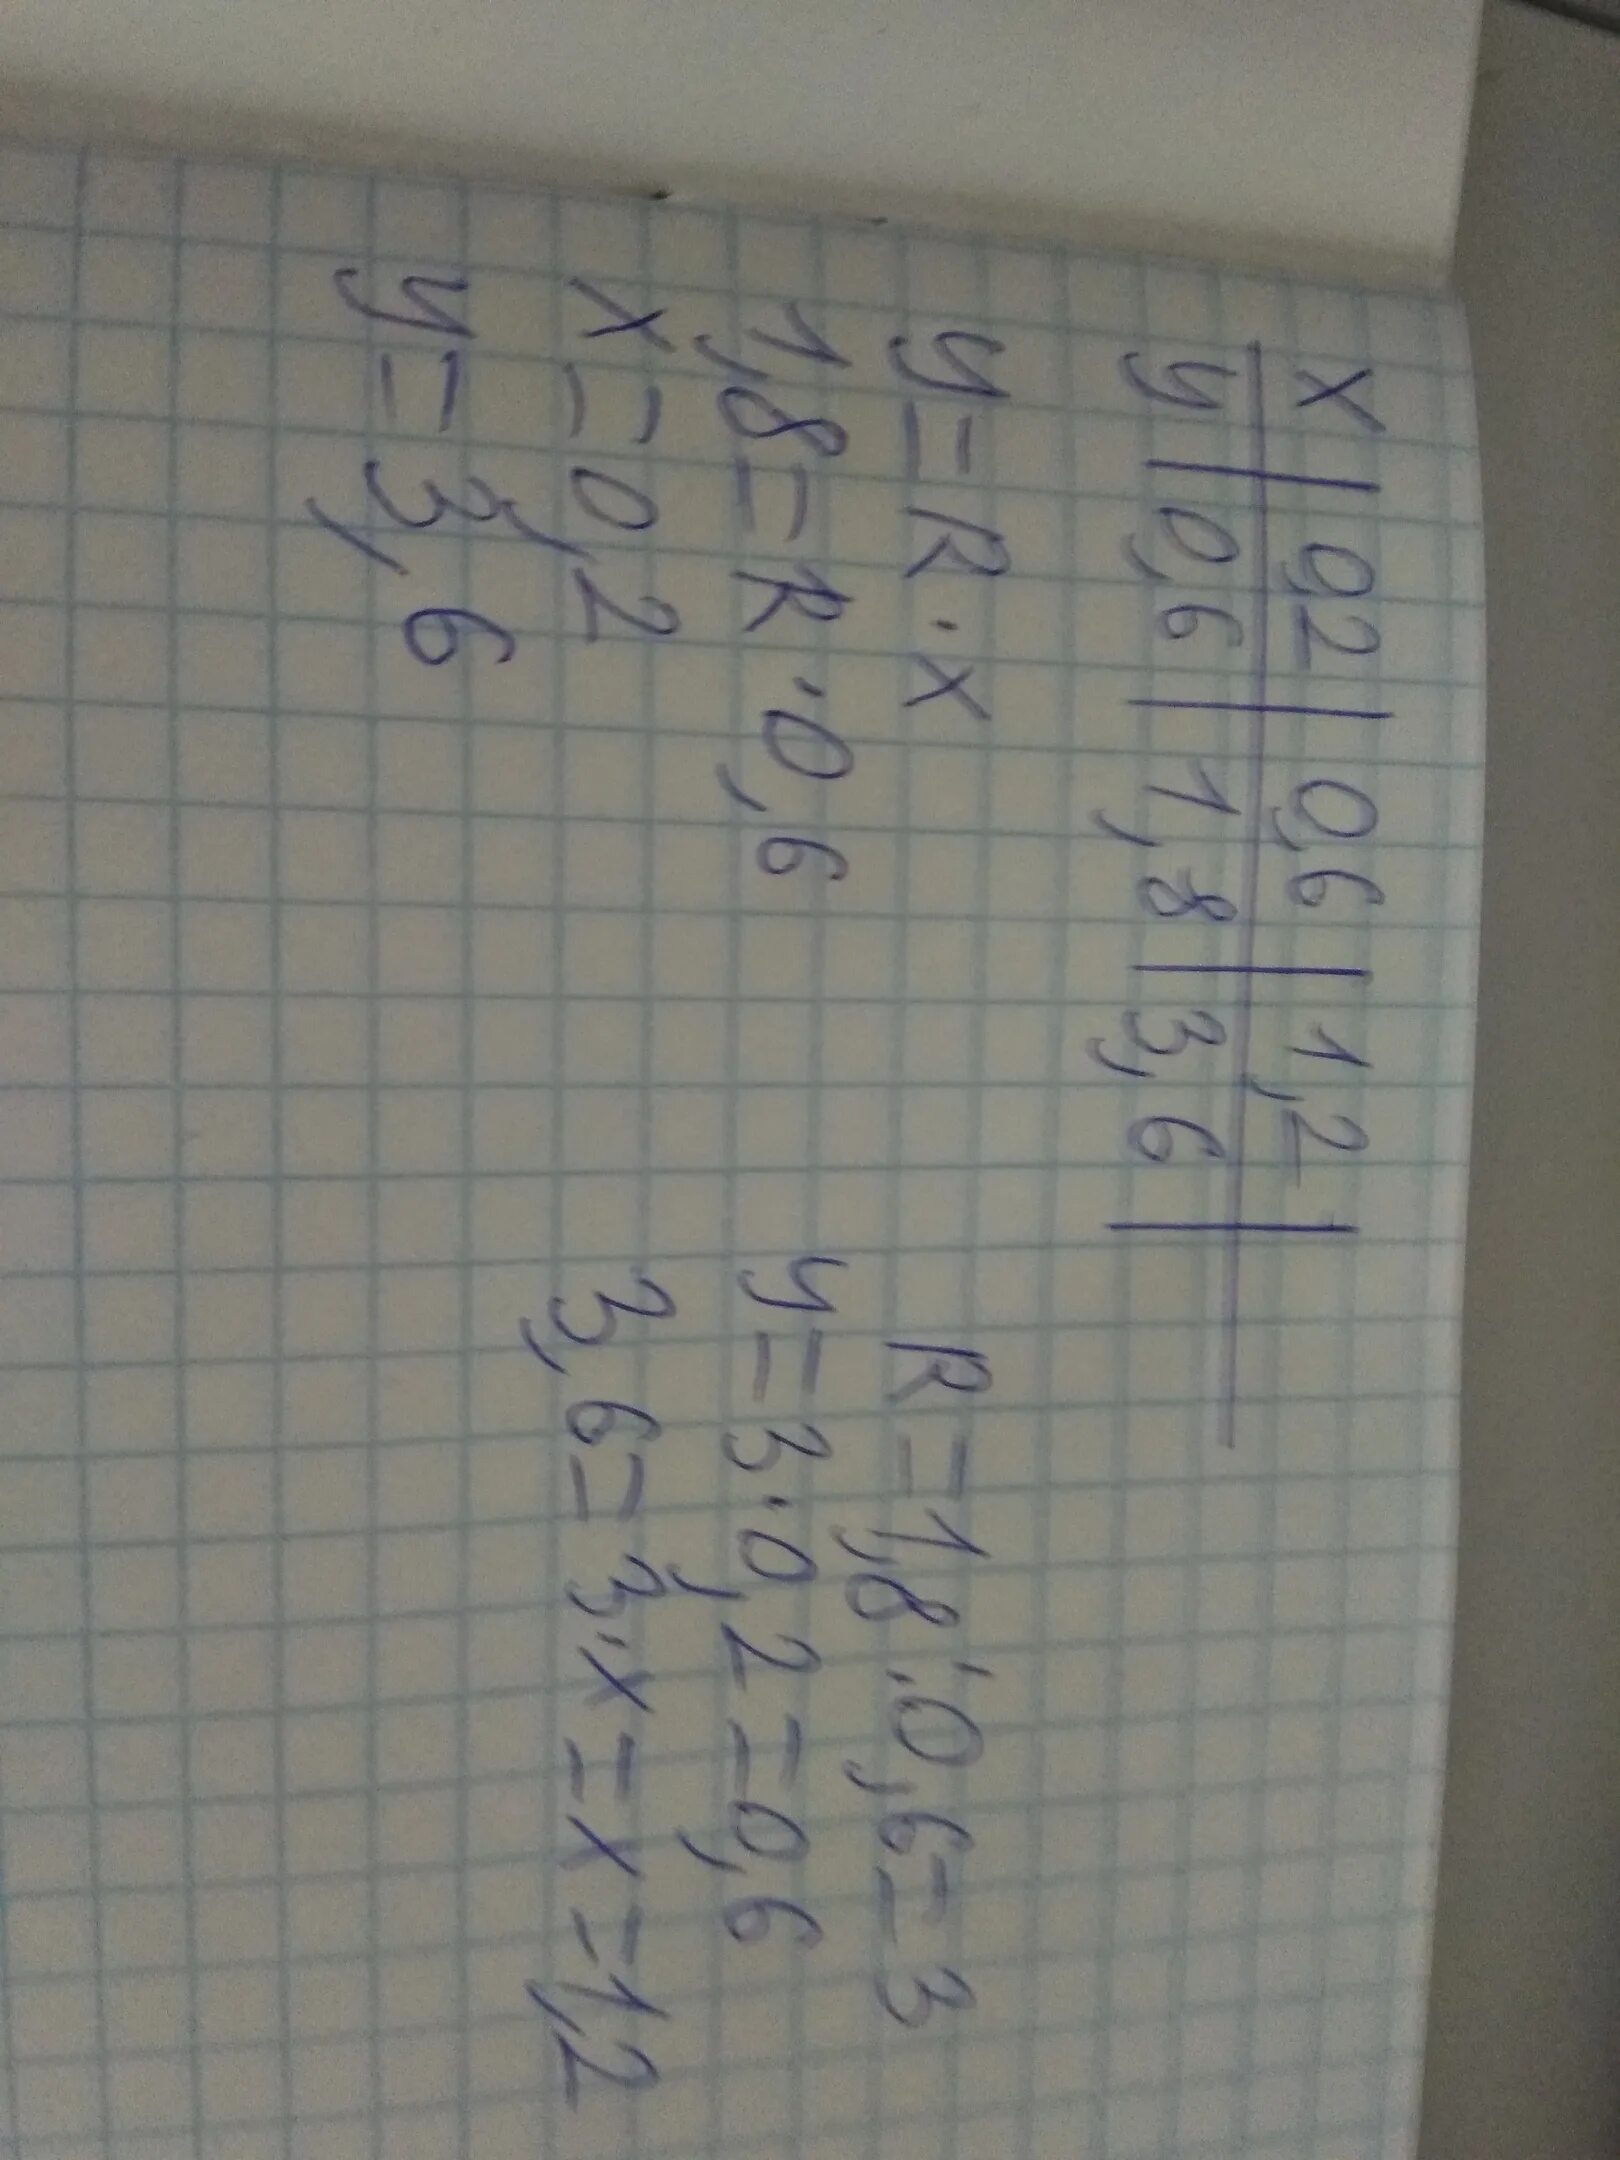 x | 0,2 | 0,6 | 1,2 |
y | 0,6 | 1,8 | 3,6 |
y = k · x
1,8 = k · 0,6
x = 0,2
y = 3,6
k = 1,8 : 0,6 = 3
y = 3 · 0,2 = 0,6
3,6 = 3 · x = x = 1,2